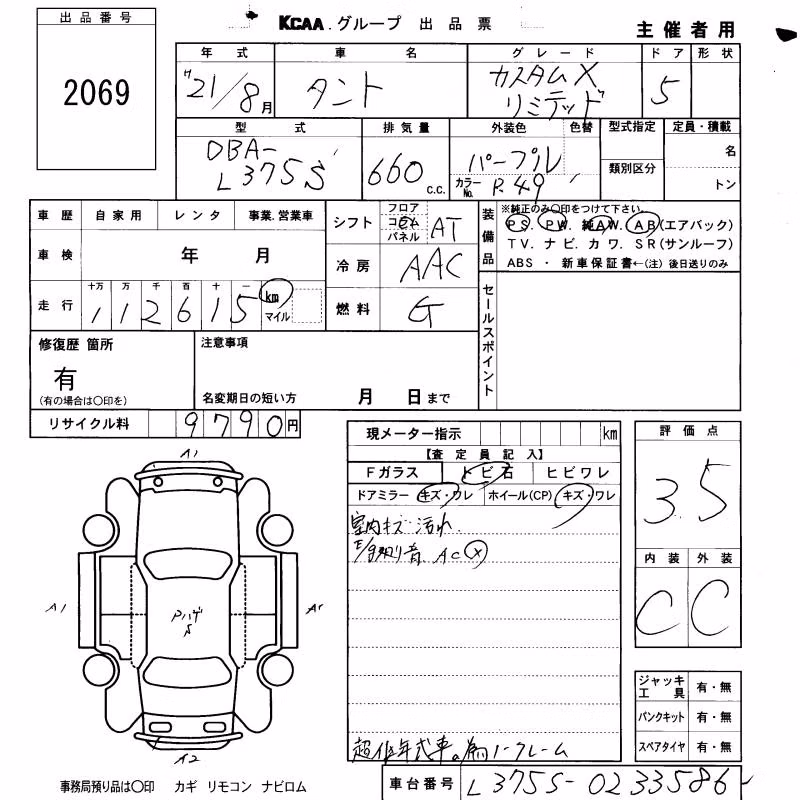 出品番号
2069
KCAA.グループ 出品票
主催者用
年式 車名 グレード ドア 形状
H21/8月 タント カスタムX リミテッド 5
型式 排気量 外装色 色替 型式指定 定員・積載
DBA-L375S 660 C.C. パープル 類別区分 名
カラーNo. P.49 トン
車歴 自家用 レンタ 事業.営業車
車検 年 月
走行 十万 万 千 百 十 一 km マイル
112615
シフト フロア コラム パネル AT
冷房 AAC
燃料 G
装備品 ※純正のみ〇印をつけて下さい。
PS. PW. 純AW. AB(エアバック)
TV. ナビ. カワ. SR(サンルーフ)
ABS ・ 新車保証書←(注) 後日送りのみ
セールスポイント
修復歴 箇所
有
(有の場合は〇印を)
注意事項
名変期日の短い方 月 日まで
リサイクル料 9790円
現メーター指示 km
【査定員記入】
Fガラス トビ石 ヒビワレ
ドアミラー キズ・ワレ ホイール(CP) キズ・ワレ
室内キズ 汚れ.
AC×
超低年式車。為ノークレーム
評価点
3.5
内装 外装
C C
ジャッキ工具 有・無
パンクキット 有・無
スペアタイヤ 有・無
A1
A1
Pハゲ
S
A1
A2
事務局預り品は〇印 カギ リモコン ナビロム
車台番号 L375S-0233586